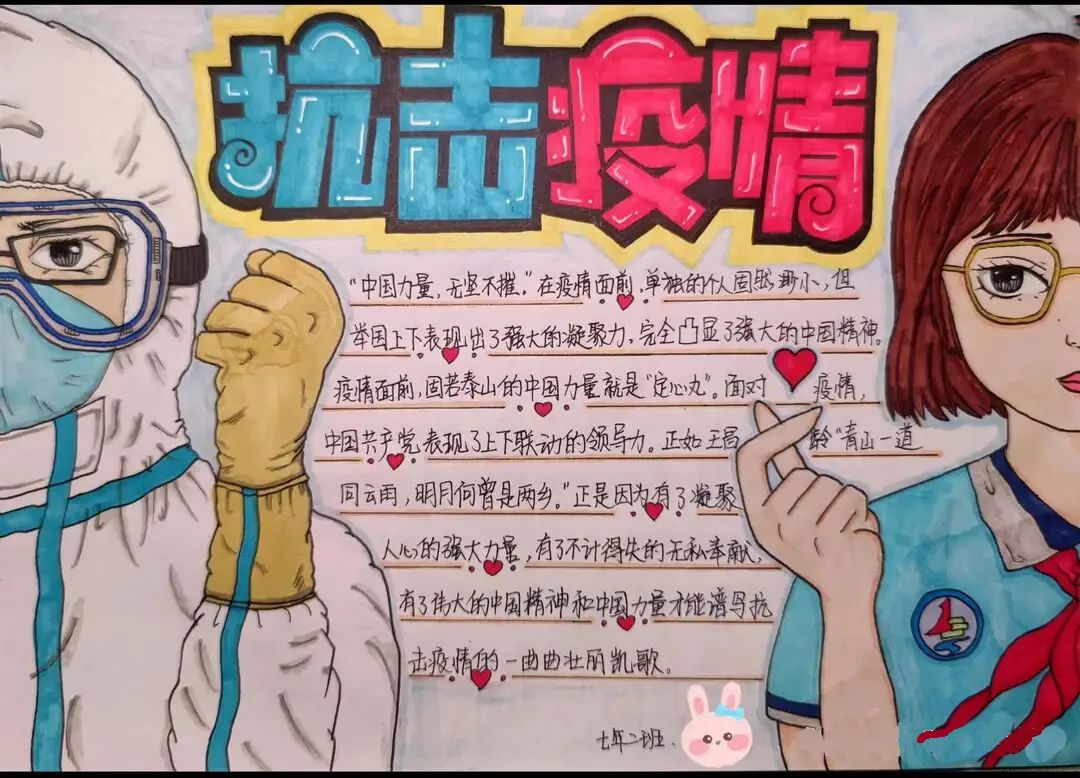 抗击疫情
"中国力量，无坚不摧。"在疫情面前，单独的个人固然渺小，但
举国上下表现出了强大的凝聚力，完全凸显了强大的中国精神。
疫情面前，固若泰山的中国力量就是"定心丸"。面对疫情，
中国共产党表现了上下联动的领导力。正如王昌龄"青山一道
同云雨，明月何曾是两乡。"正是因为有了凝聚
人心的强大力量，有了不计得失的无私奉献，
有了伟大的中国精神和中国力量才能谱写抗
击疫情的一曲曲壮丽凯歌。
七年二班.